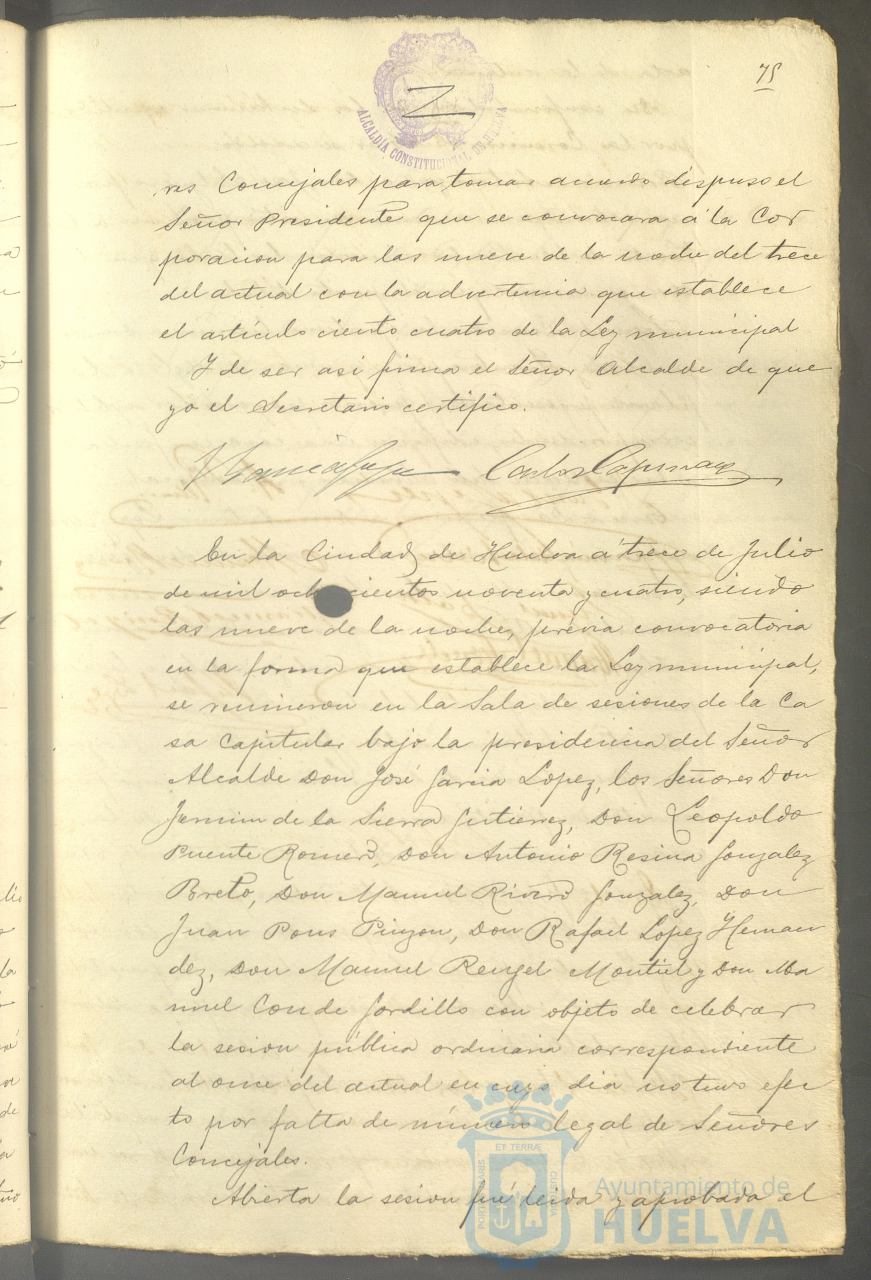 75
ALCALDÍA CONSTITUCIONAL DE HUELVA
res Concejales para tomar acuerdo dispuso el
Señor Presidente que se convocara á la Cor
poracion para las nueve de la noche del trece
del actual con la advertencia que establece
el artículo ciento cuatro de la Ley municipal
Y de ser asi firma el Señor Alcalde de que
yo el Secretario certifico.
En la Ciudad de Huelva á trece de Julio
de mil ochocientos noventa y cuatro, siendo
las nueve de la noche, previa convocatoria
en la forma que establece la Ley municipal,
se reunieron en la Sala de sesiones de la Ca
sa Capitular bajo la presidencia del Señor
Alcalde Don José Garcia Lopez, los Señores Don
Jermin de la Sierra Gutierrez, Don Leopoldo
Puente Romero, Don Antonio Resina Gonzalez
Breto, Don Manuel Rivero Gonzalez, Don
Juan Pons Pinzon, Don Rafael Lopez Hernan
dez, Don Manuel Rengel Montiel y Don Ma
nuel Conde Gordillo con objeto de celebrar
la sesion pública ordinaria correspondiente
al once del actual en cuyo dia no tuvo efec
to por falta de número legal de Señores
Concejales.
Abierta la sesion fué leida y aprobada el
PORTUS MARIS ET TERRÆ CUSTODIA
Ayuntamiento de
HUELVA